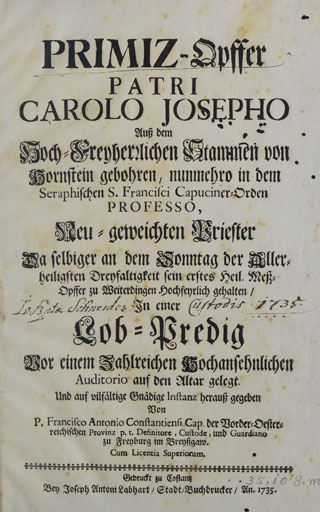 PRIMIZ-Opffer
PATRI
CAROLO JOSEPHO
Auß dem
Hoch-Freyherrlichen Stammen von
Hornstein gebohren, nunmehro in dem
Seraphischen S. Francisci Capuciner-Orden
PROFESSO,
Neu-geweichten Priester
Da selbiger an dem Sonntag der Aller-
heiligsten Dreyfaltigkeit sein erstes Heil. Meß-
Opffer zu Weiterdingen Hochfeyrlich gehalten /
Schneider In einer Custodis 1735
Lob-Predig
Vor einem Zahlreichen Hochansehnlichen
Auditorio auf den Altar gelegt.
Und auf vilfältige Gnädige Instanz herauß gegeben
Von
P. Francisco Antonio Constantiensi Cap. der Vorder-Oester-
reichischen Provinz p. t. Definitore, Custode, und Guardiano
zu Freyburg im Breyßgaw.
Cum Licentia Superiorum.
Gedruckt zu Costantz
Bey Joseph Antoni Labhart / Stadt-Buchdrucker / An. 1735.